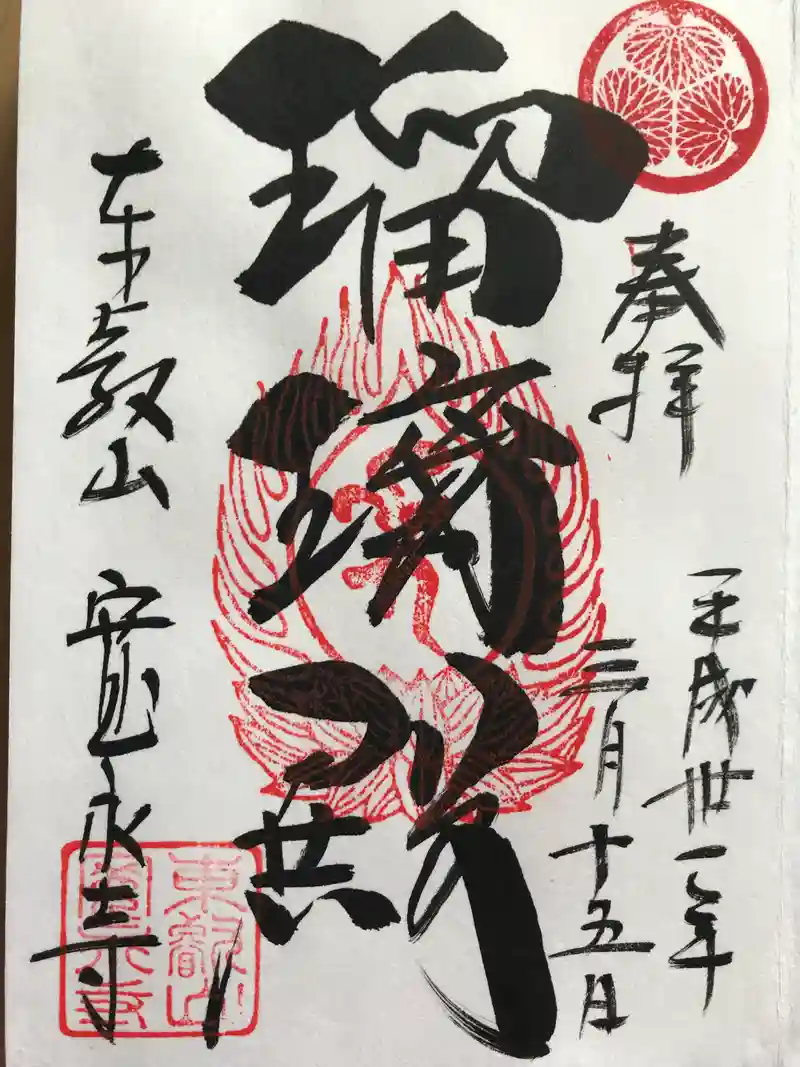 奉拝
平成卅一年
三月十五日
瑠璃殿
東叡山 寛永寺
東叡山
寛永寺